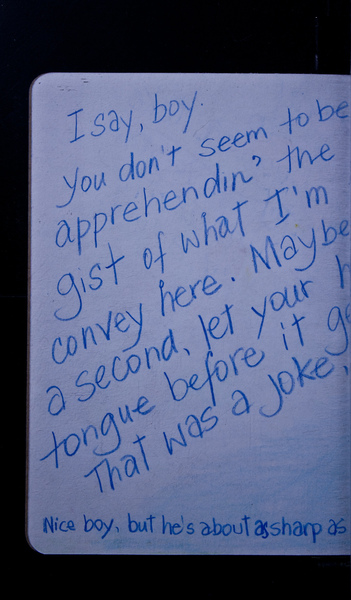 I say, boy.
You don't seem to be
apprehendin' the
gist of what I'm
convey here. Maybe
a second, let your
tongue before it
That was a joke,
Nice boy, but he's about as sharp as